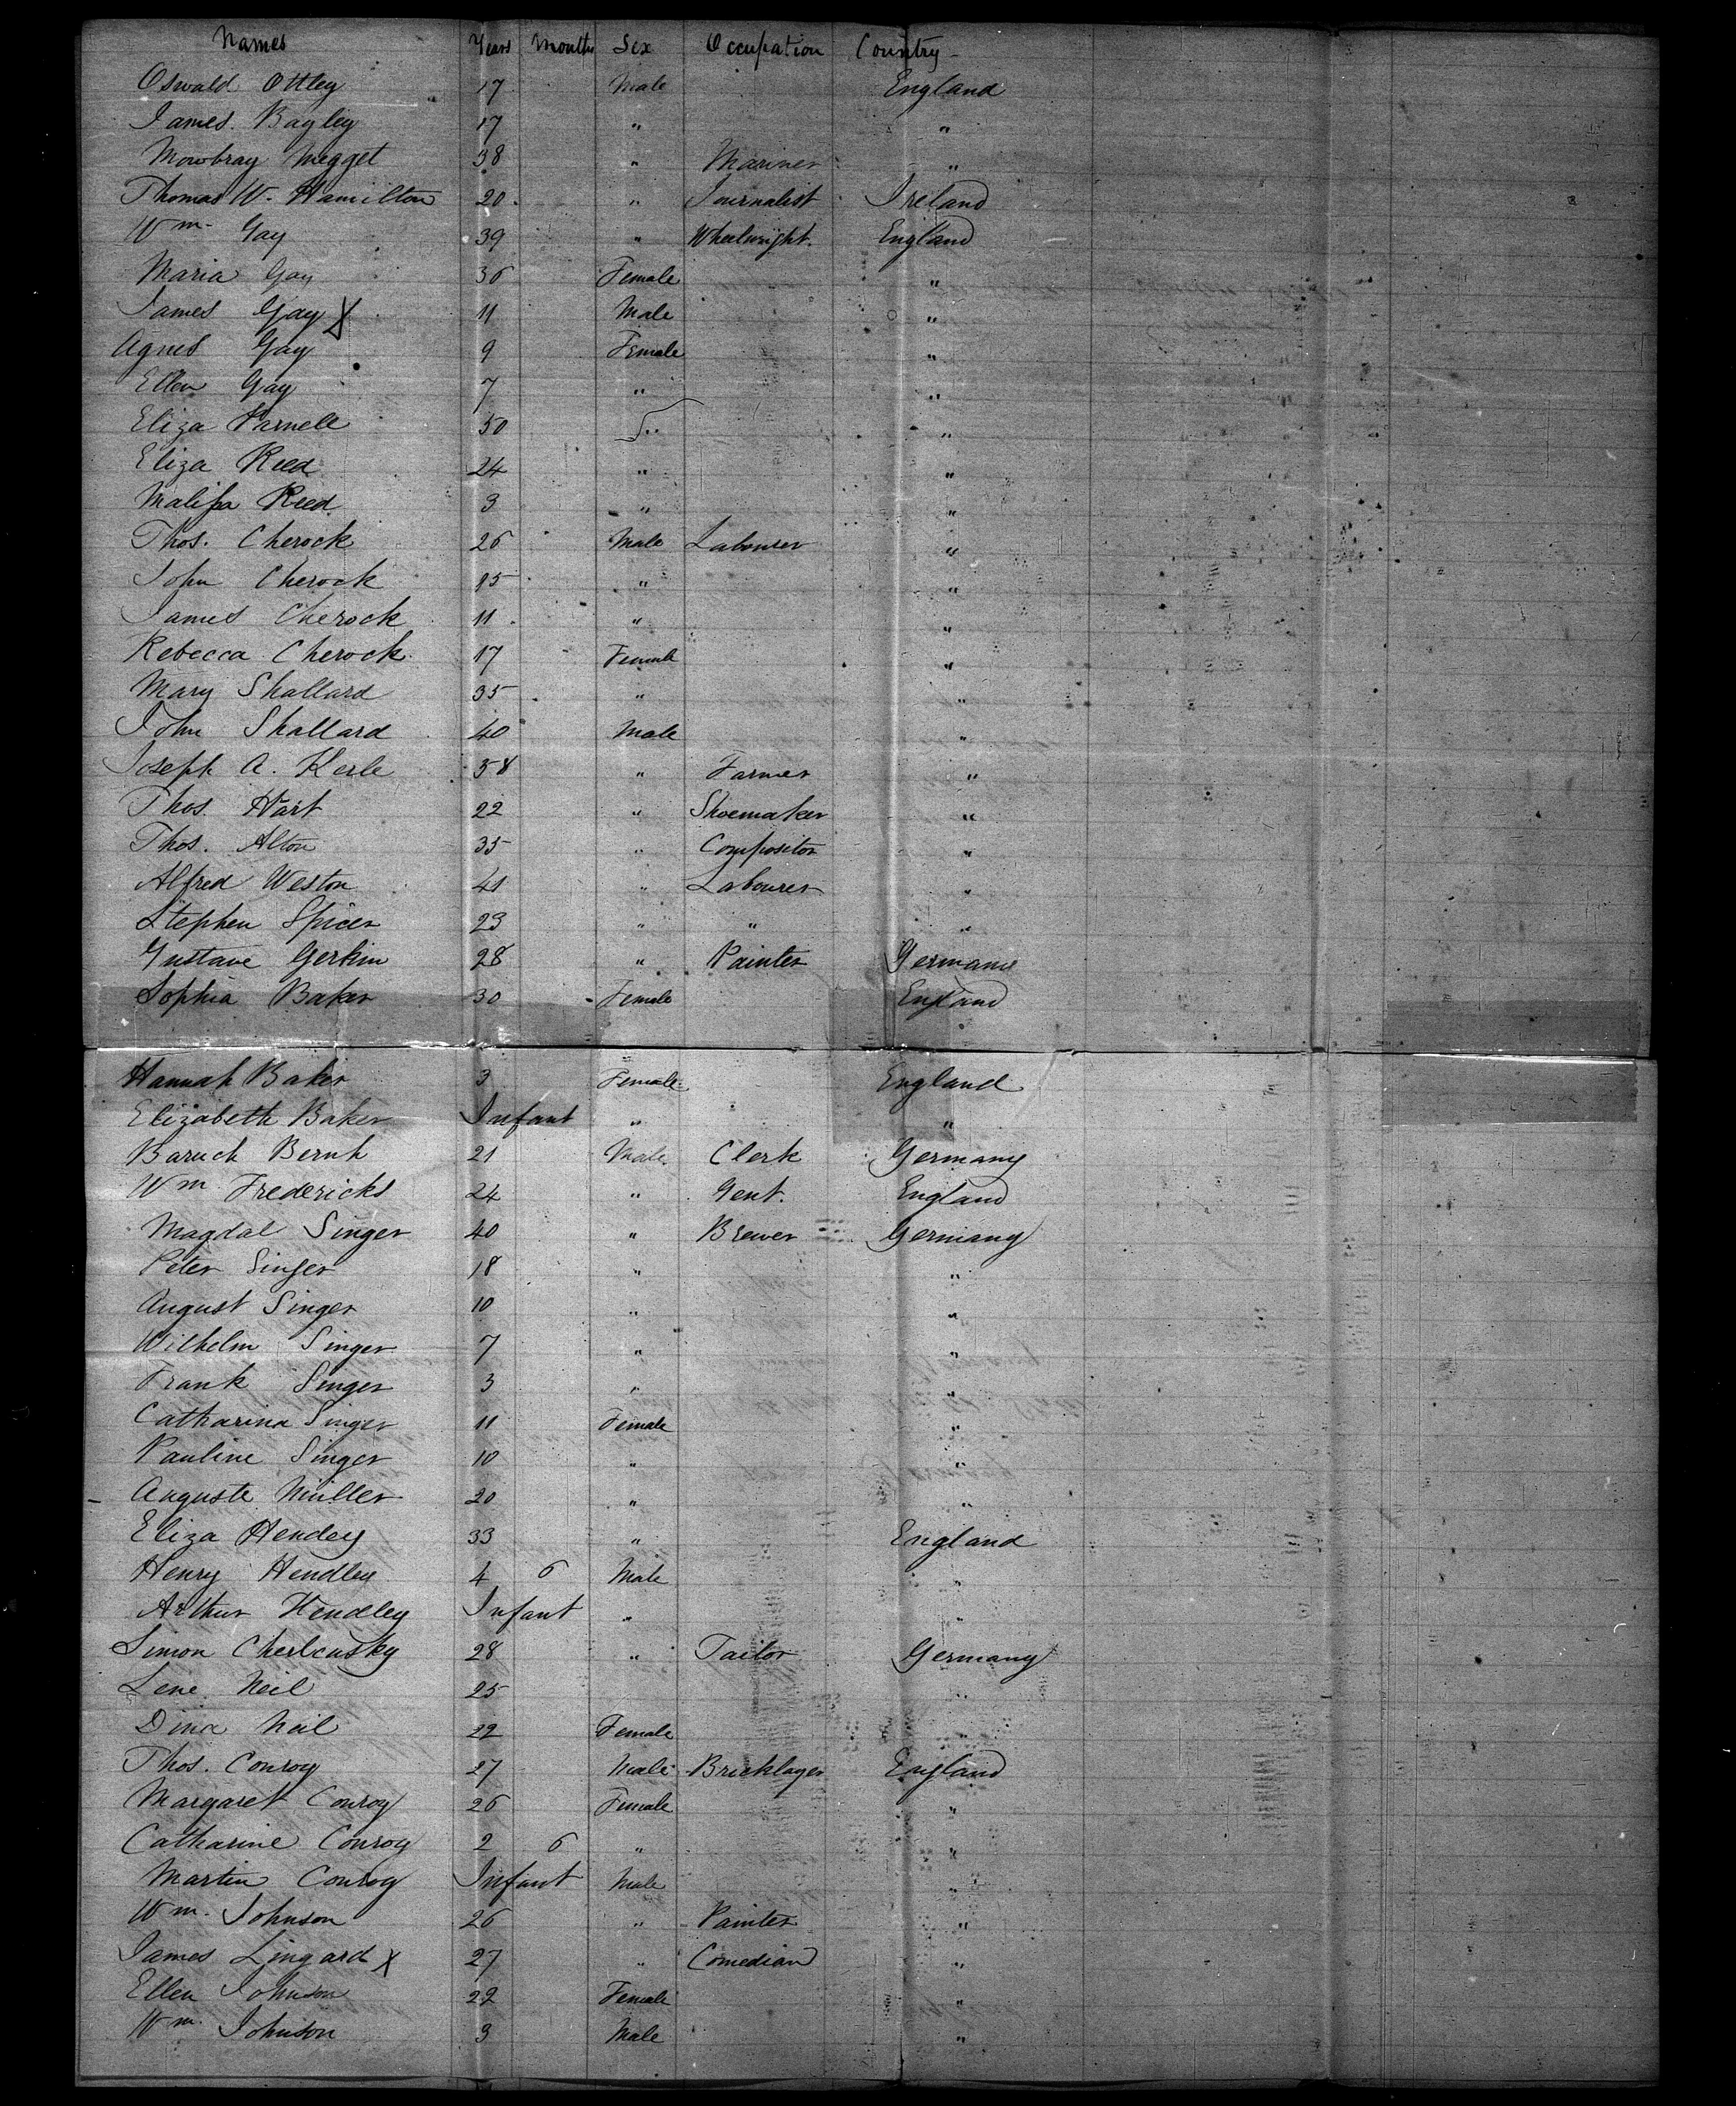 Names Years Months Sex Occupation Country
Oswald Ottley 17 Male England
James Bagley 17 " "
Mowbray Megget 38 " Mariner "
Thomas W. Hamilton 20 " Journalist Ireland
Wm. Gay 39 " Wheelwright. England
Maria Gay 36 Female "
James Gay X 11 Male "
Agnes Gay 9 Female "
Ellen Gay 7 " "
Eliza Parnell 50 " "
Eliza Reed 24 " "
Malissa Reed 3 " "
Thos. Cherock 26 Male Labourer "
John Cherock 25 " "
James Cherock 11 " "
Rebecca Cherock 17 Female "
Mary Shallard 35 " "
John Shallard 40 Male "
Joseph A. Kerle 58 " Farmer "
Thos. Hart 22 " Shoemaker "
Thos. Alton 35 " Compositor "
Alfred Weston 41 " Labourer "
Stephen Spicer 23 " " "
Gustave Gerkin 28 " Painter Germany
Sophia Baker 30 Female England
Hannah Baker 3 Female England
Elizabeth Baker Infant " "
Baruch Bernh 21 Male Clerk Germany
Wm Fredericks 24 " Gent. England
Magdal Singer 40 " Brewer Germany
Peter Singer 18 " "
August Singer 10 " "
Wilhelm Singer 7 " "
Frank Singer 3 " "
Catharina Singer 11 Female "
Pauline Singer 10 " "
Auguste Müller 20 " "
Eliza Hendey 33 " England
Henry Hendley 4 6 Male "
Arthur Hendley Infant " "
Simon Cherlensky 28 " Tailor Germany
Lene Neil 25 "
Dina Neil 22 Female "
Thos. Conroy 27 Male Bricklayer England
Margaret Conroy 26 Female "
Catharine Conroy 2 6 " "
Martin Conroy Infant Male "
Wm. Johnson 26 " Painter "
James Lingard X 27 " Comedian "
Ellen Johnson 22 Female "
Wm. Johnson 3 Male "